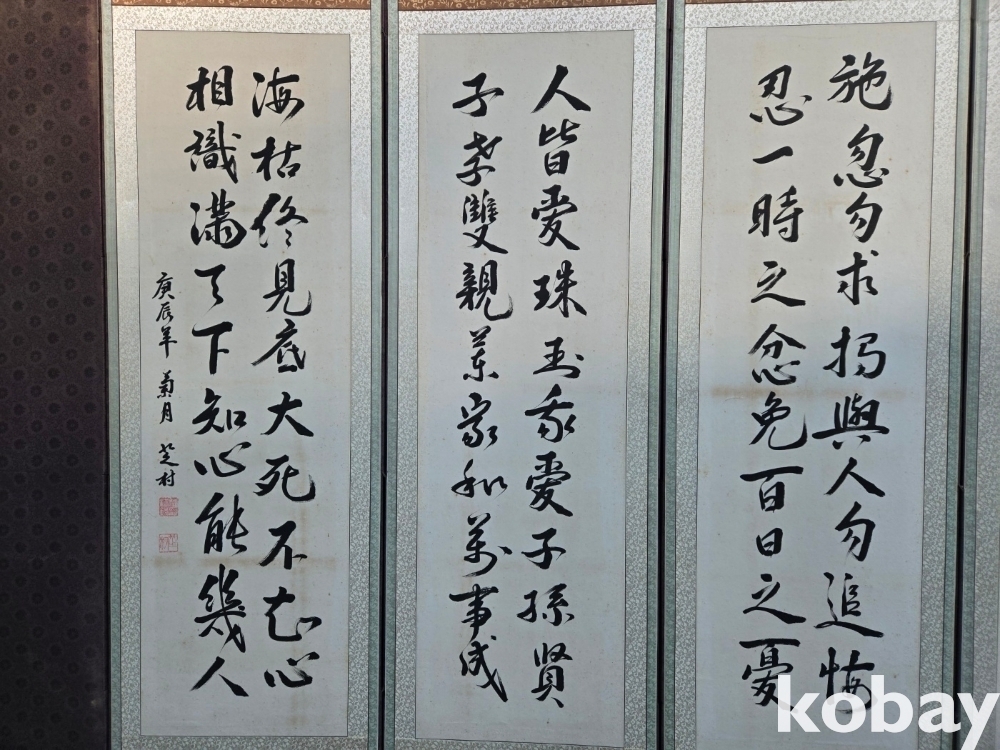 施恩勿求報與人勿追悔
忍一時之忿免百日之憂
人皆愛珠玉我愛子孫賢
子孝雙親樂家和萬事成
海枯終見底大死不知心
相識滿天下知心能幾人
庚辰年 菊月 芝村
kobay